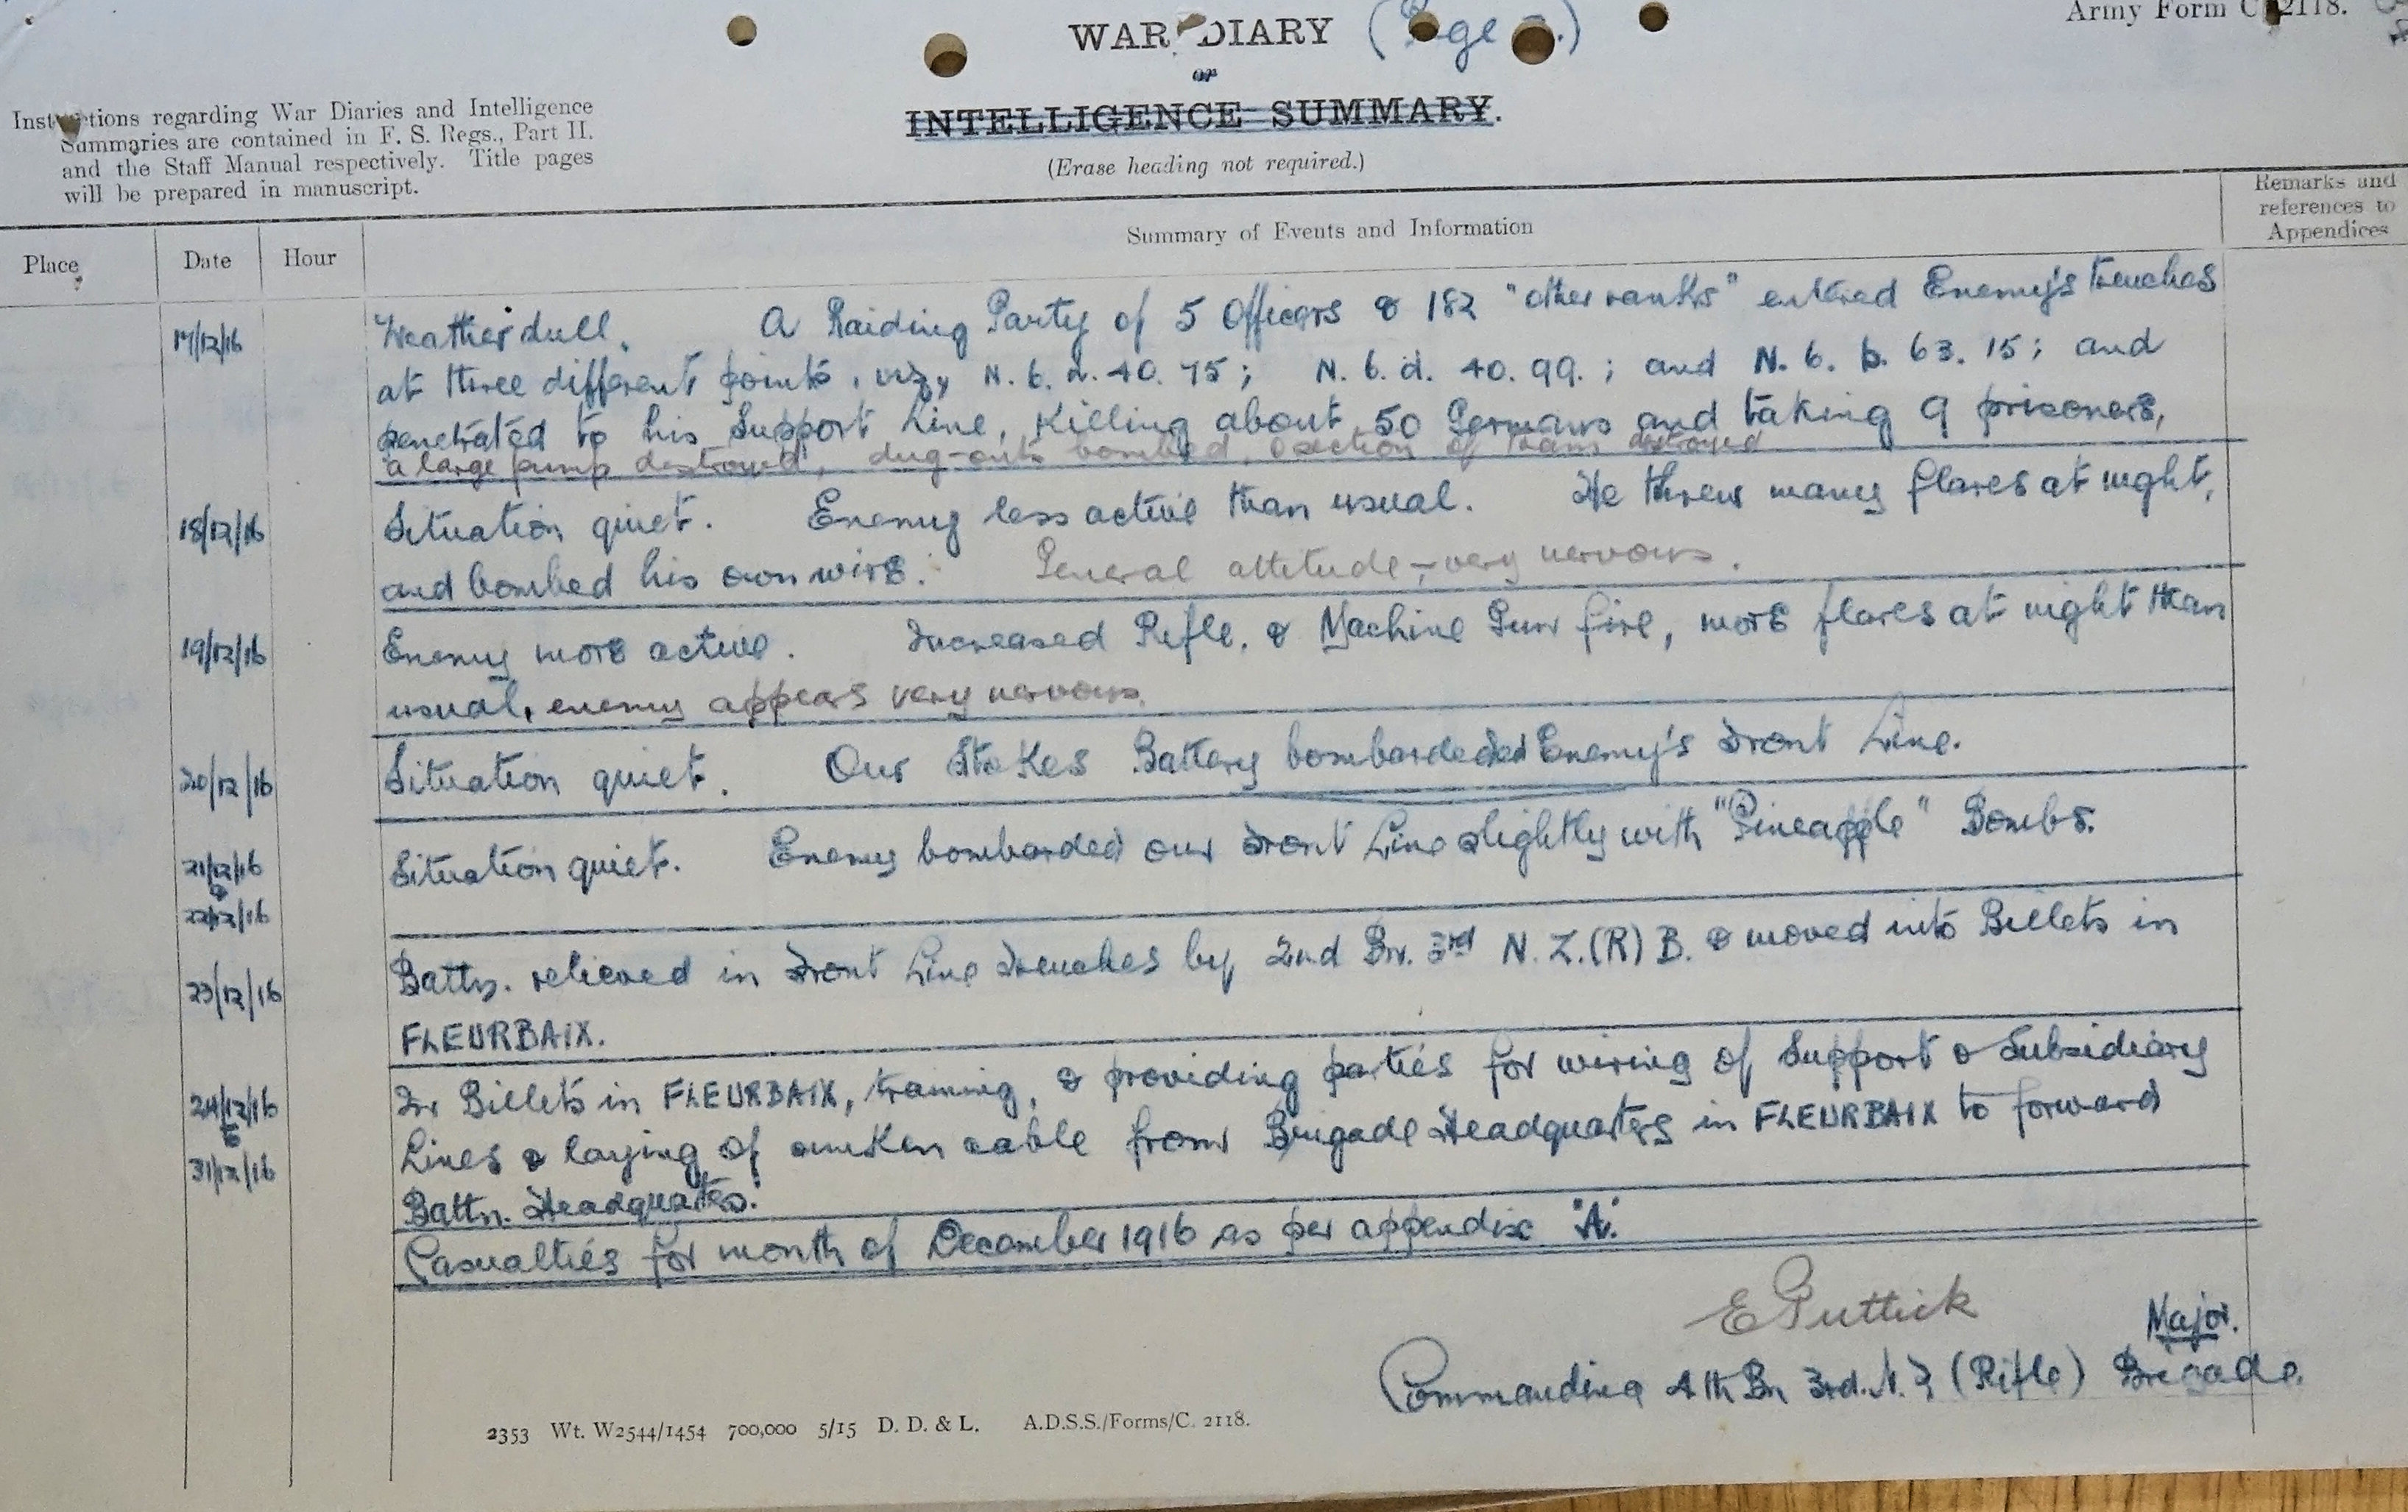 WAR DIARY
Army Form C. 2118.
or
INTELLIGENCE SUMMARY.
(Erase heading not required.)
Instructions regarding War Diaries and Intelligence
Summaries are contained in F. S. Regs., Part II.
and the Staff Manual respectively. Title pages
will be prepared in manuscript.
Place
Date
Hour
Summary of Events and Information
Remarks and
references to
Appendices
17/12/16
Weather dull. A Raiding Party of 5 Officers & 182 "other ranks" entered Enemy's trenches
at three different points, viz, N. 6. d. 40. 75; N. 6. d. 40. 99.; and N. 6. b. 63. 15; and
penetrated to his Support Line, Killing about 50 Germans and taking 9 prisoners,
a large pump destroyed, dug-outs bombed, section of tram destroyed
18/12/16
Situation quiet. Enemy less active than usual. He threw many flares at night,
and bombed his own wire. General attitude – very nervous.
19/12/16
Enemy more active. Increased Rifle. & Machine Gun fire, more flares at night than
usual, enemy appears very nervous.
20/12/16
Situation quiet. Our Stokes Battery bombarded Enemy's Front Line.
21/12/16
&
22/12/16
Situation quiet. Enemy bombarded our Front Line slightly with "Pineapple" Bombs.
23/12/16
Battn. relieved in Front Line Trenches by 2nd Bn. 3rd N. Z. (R) B. & moved into Billets in
FLEURBAIX.
24/12/16
to
31/12/16
In Billets in FLEURBAIX, training, & providing parties for wiring of Support & Subsidiary
Lines & laying of sunken cable from Brigade Headquarters in FLEURBAIX to forward
Battn. Headquarters.
Casualties for month of December 1916 as per appendix "A".
E Puttick
Major.
Commanding 4th Bn 3rd. N. Z (Rifle) Brigade.
2353 Wt. W2544/1454 700,000 5/15 D. D. & L. A.D.S.S./Forms/C. 2118.